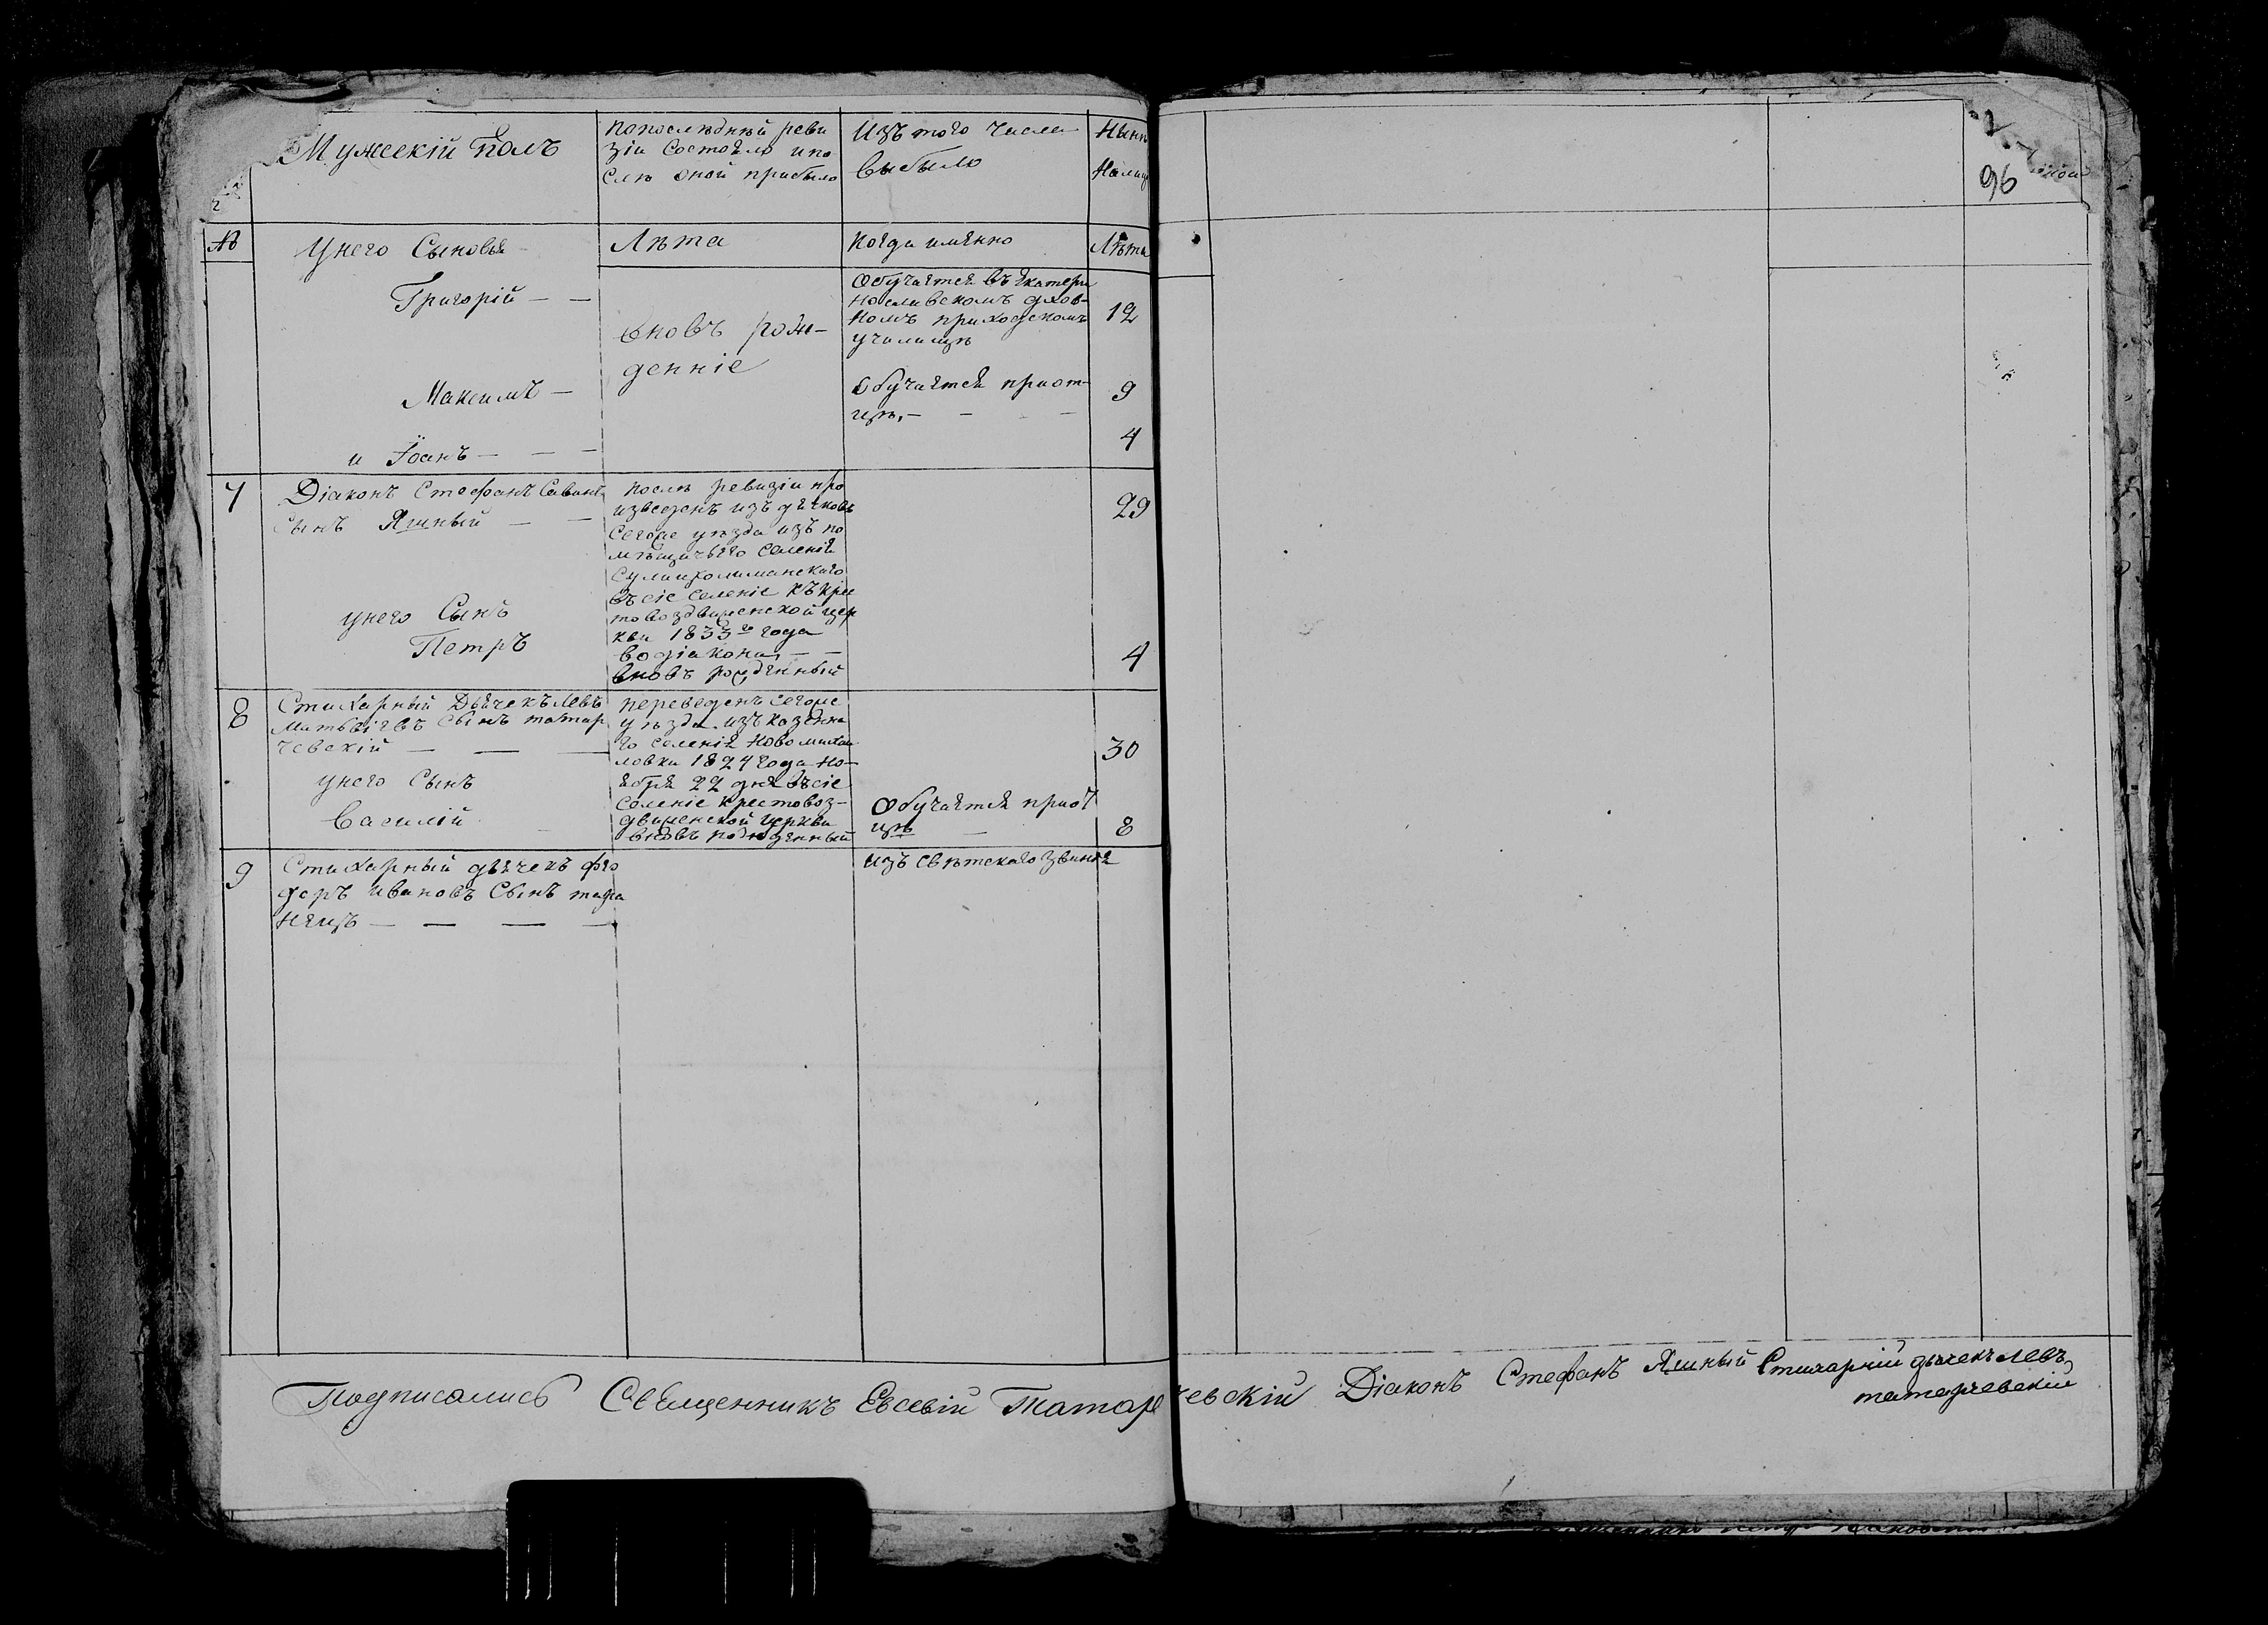 Мужескій Полъ
По последней реви
зіи состояло и по
слѣ оной прибыло
Изъ того числа
выбыло
Нынѣ
Налиц
96
№
У него Сыновья
Лѣта
Когда имянно
Лѣта
Григорій — —
вновь рож-
денніе
Обучается въ Екатери
нославскомъ духов-
номъ приходскомъ
училищѣ
12
Максимъ —
Обучается при от-
цѣ, — — —
9
и Іоанъ — — —
4
7
Діаконъ Стефанъ Савинъ
сынъ Яшный — —
послѣ ревизіи про
изведенъ изъ дячковъ
сегоже уѣзда изъ по
мѣщичьяго селенія
въ сіе селеніе къ Кре
стовоздвиженской цер
кви 1833го года
во діакона, — —
вновь рожденный
29
у него Сынъ
Петръ
4
8
Стихарный Дьячекъ Левъ
Матвѣевъ сынъ татар
чевскій — — —
переведенъ сегоже
уѣзда изъ казенна
го селенія Новомихай
ловки 1824 года Но-
ября 22 дня въ сіе
селеніе Крестовоз-
движенской церкви
вновь рожденный
30
у него Сынъ
Василій
Обучается при от
цѣ —
8
9
Стихарный дьячекъ Фео
доръ Ивановъ Сынъ тара
нецъ — — — —
изъ свѣтскаго званія
Подписались Священникъ Евсевій Татарчевскій Діаконъ Стефанъ Яшный Стихарній дьячекъ Левъ
татарчевскій